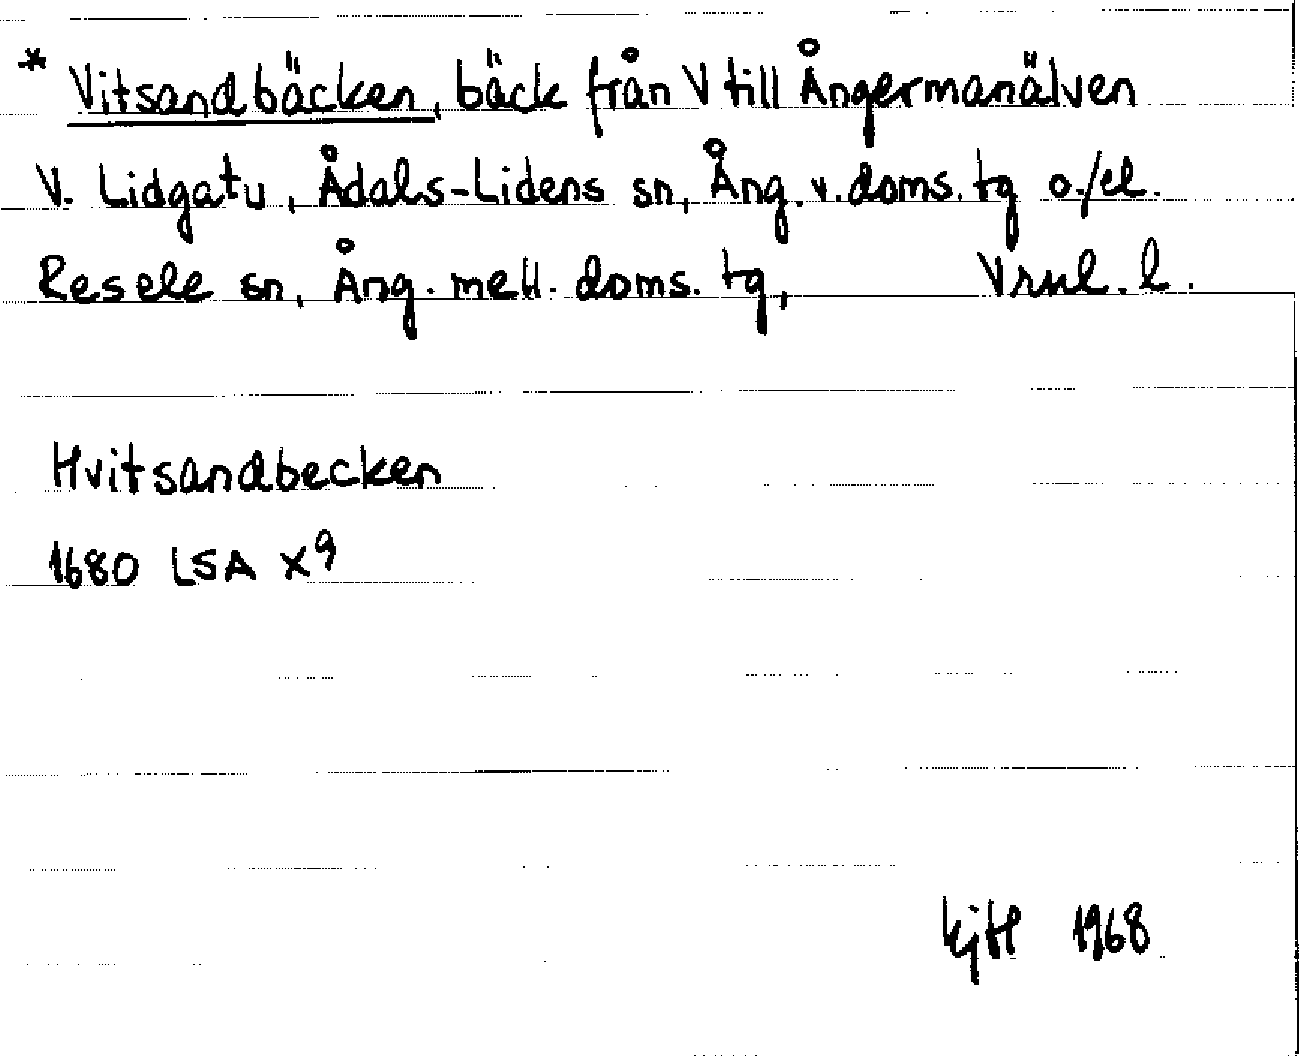 * Vitsandbäcken, bäck från V till Ångermanälven
V. Lidgatu, Ådals-Lidens sn, Ång. v. doms. tg o./el.
Resele sn, Ång. mell. doms. tg, Vrnl. l.
Hvitsandbecken
1680 LSA X9
KjH 1968